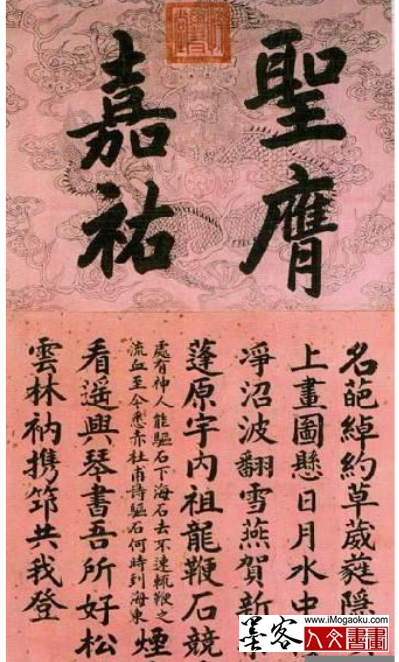 聖膺
嘉祐
名葩綽約草葳蕤隱
上畫圖懸日月水中
淨沼波翻雪燕賀新
蓬原宇內祖龍鞭石競
處有神人能驅石下海石去不速輒鞭之
流血至今悉赤杜甫詩驅石何時到海東
煙
看遙興琴書吾所好松
雲林衲携笻共我登
墨客
www.iMogaoku.com
人文書畫